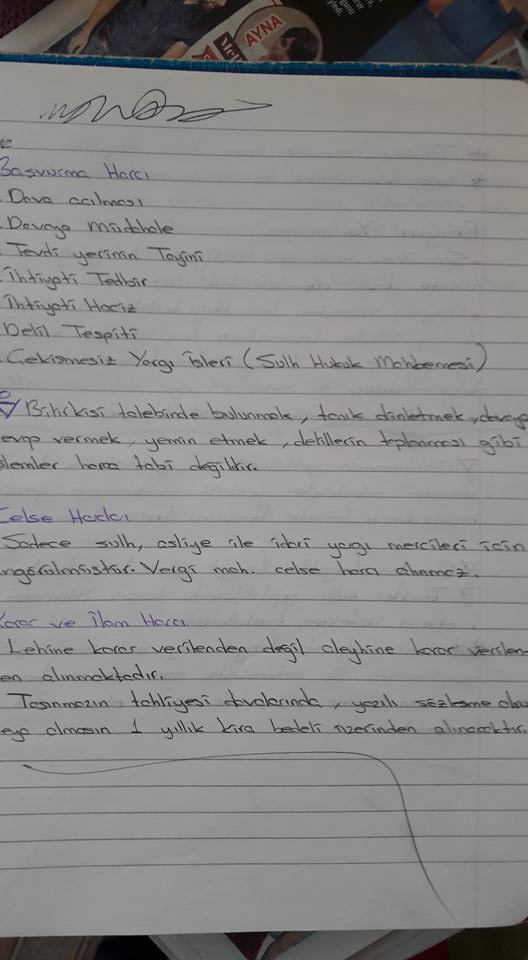 AYNA
Başvurma Harcı
Dava açılması
Davaya müdahale
Tevdi yerinin Tayini
İhtiyati Tedbir
İhtiyati Haciz
Delil Tespiti
Çekişmesiz Yargı İşleri (Sulh Hukuk Mahkemesi)
Bilirkişi talebinde bulunmak, tanık dinletmek, davaya
evap vermek, yemin etmek, delillerin toplanması gibi
şlemler harca tabi değildir.
Celse Harcı
Sadece sulh, asliye ile idari yargı mercileri için
ngörülmüştür. Vergi mah. celse harcı alınmaz.
Karar ve İlam Harcı
Lehine karar verilenden değil aleyhine karar verilen-
en alınmaktadır.
Taşınmazın tahliyesi davalarında, yazılı sözleşme olsu
eya olmasın 1 yıllık kira bedeli üzerinden alınacaktır.